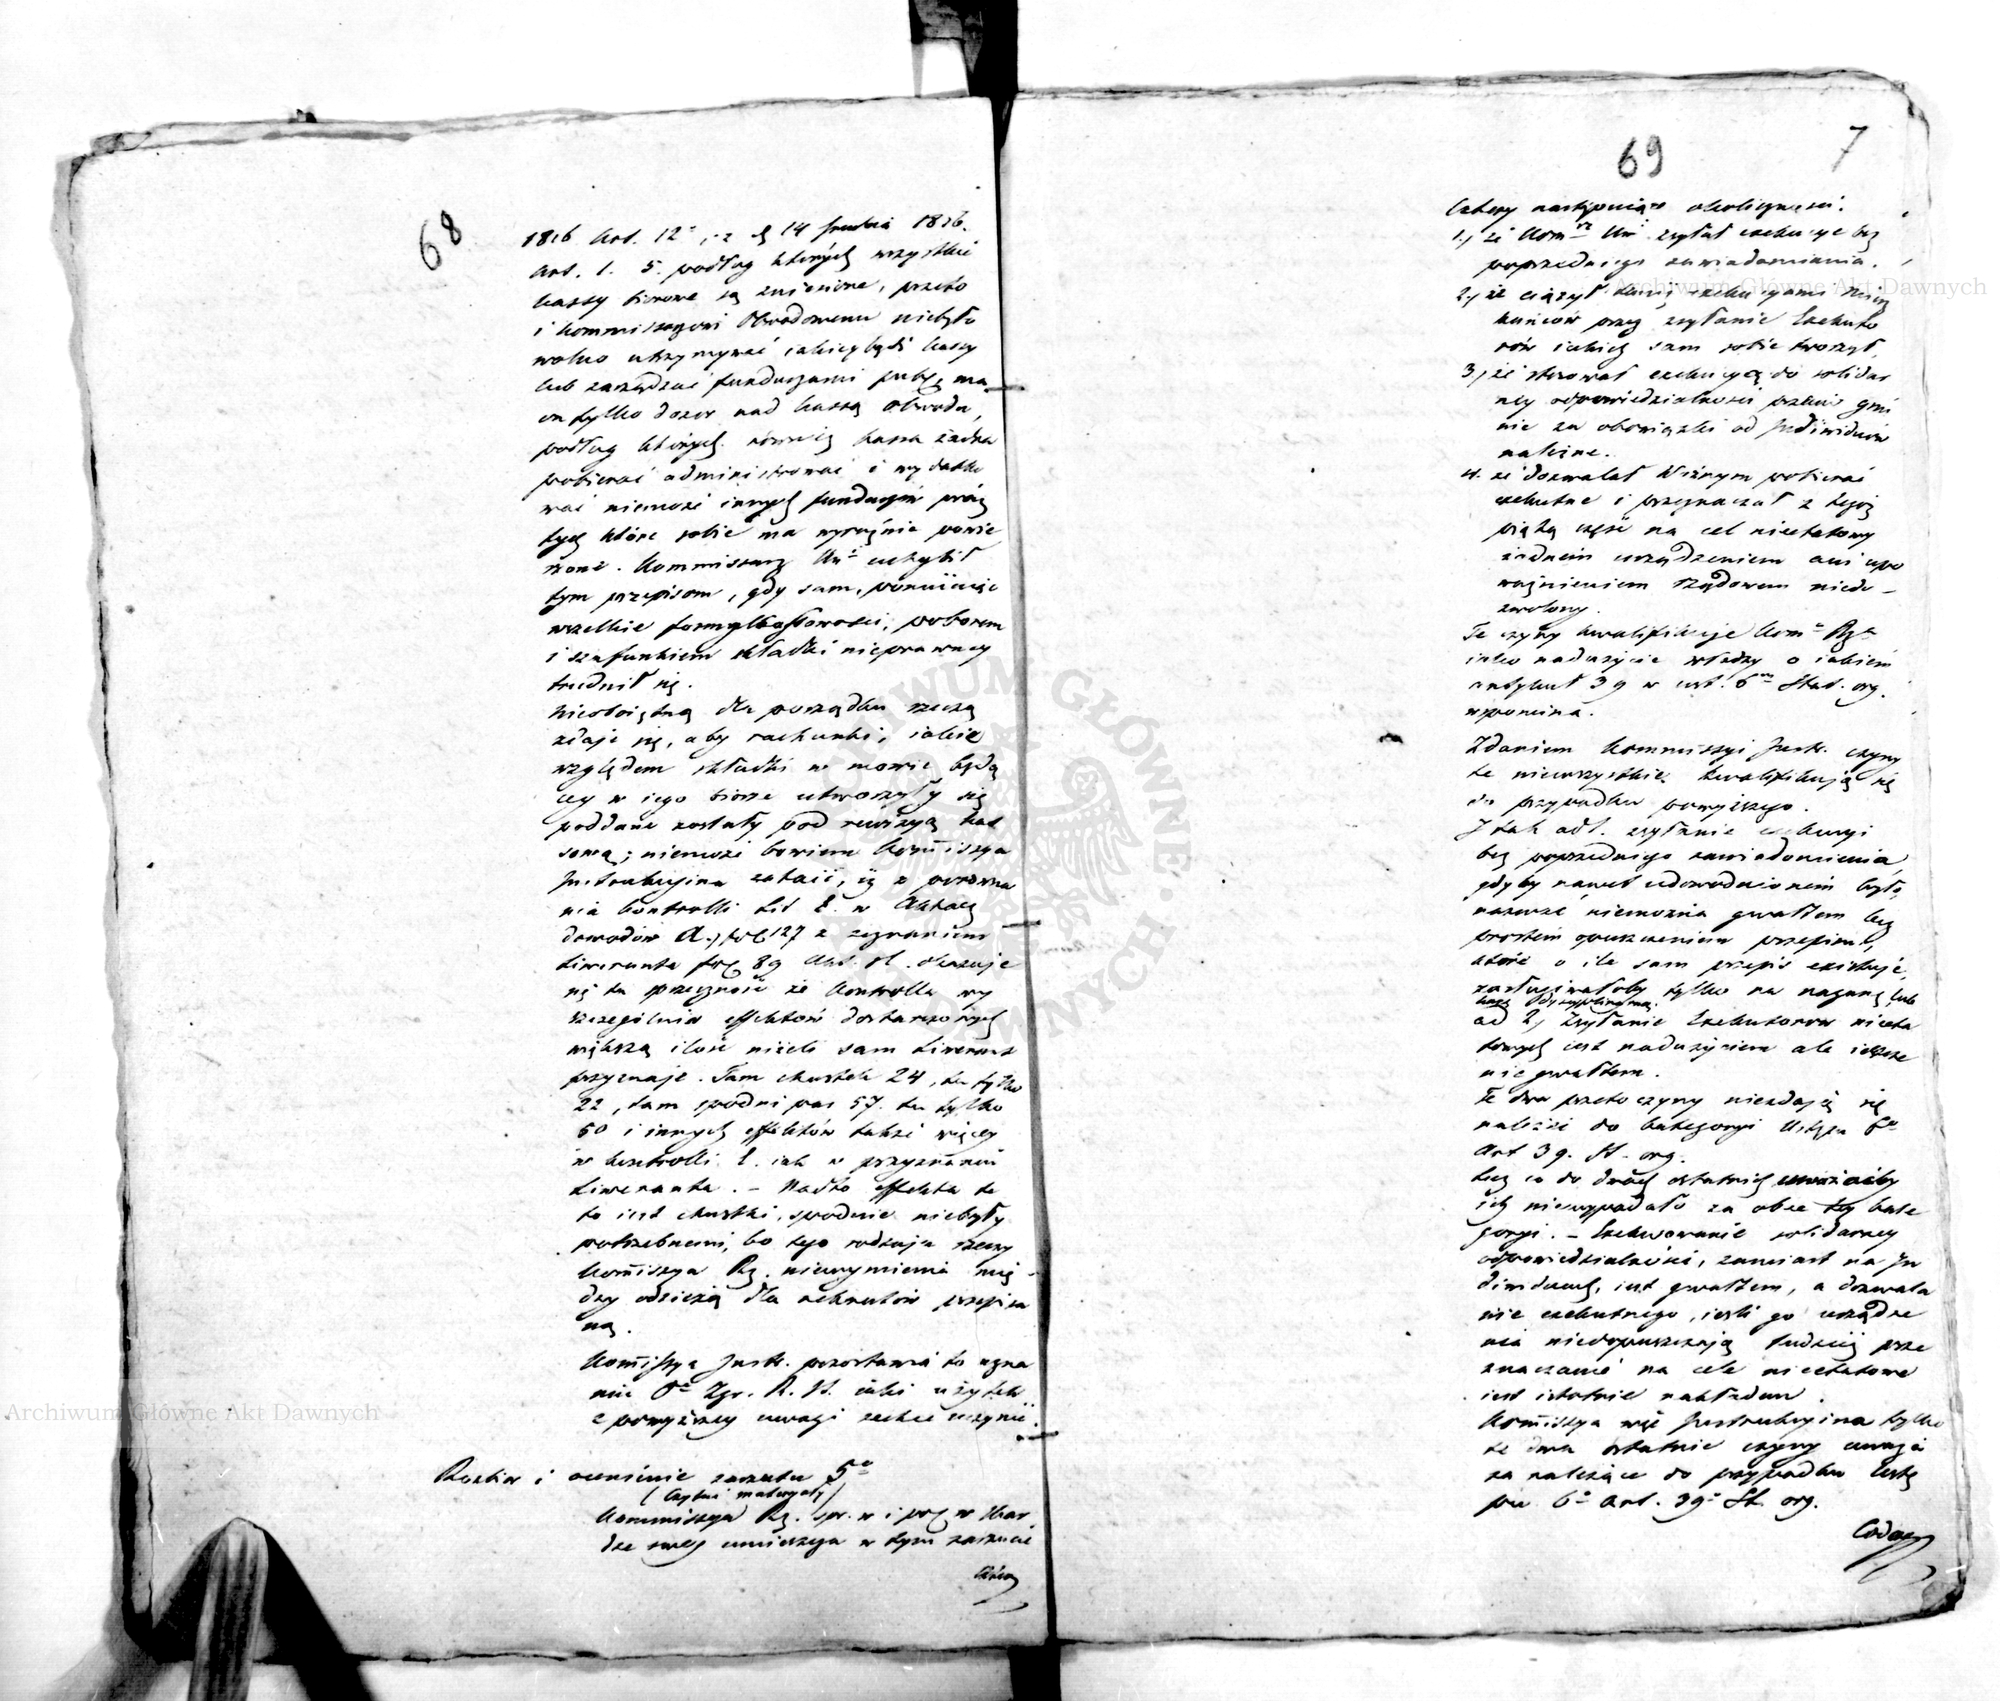 68
1816 Art. 12 i z d. 14 Grudnia 1816.
Art. 1. 5. podług których wszystkie
kassy biorowe są zniesione, przeto
i Kommissarzowi Obwodowemu niebyło
wolno utrzymywać jakieybądź kassy
lub zarządzać funduszami publ. ma
on tylko dozor nad kassą obwodu,
podług których również kassa żadna
pobierać administrować i wydatko
wać niemoże innych funduszów prócz
tych które sobie ma wyraźnie powie
rzone. Kommissarz Un. uchybił
tym przepisom, gdy sam, pomiiaiąc
wszelkie formy, poborem
i szafunkiem składki nieprawney
trudnił się.
Nieobojętną dla porządku rzeczą
zdaje się, aby rachunki, jakie
względem składki w mowie będą
cey w jego biorze utworzyły się
poddane zostały pod rewizyą kas
sową; niemoże bowiem Kommissya
Instrukcyjna zataić, iż z porówna
nia kontrolli Lit E. w Aktach
dowodów A., fol 127 z zeznaniem
Liweranta fol 89 Akt. H. okazuje
się ta sprzeczność że kontrolla wy
szczególnia effektów dostarczonych
większą ilość niżeli sam Liwerant
przyznaje. Tam chustek 24, tu tylko
22, tam spodni par 57. tu tylko
50 i innych effektów także więcey
w kontrolli E. jak w przyznaniu
Liweranta. – Nadto effekta te
to iest chustki, spodnie niebyły
potrzebnemi, bo tego rodzaju rzeczy
Kommissya Rz. niewymienia mię-
dzy odzieżą dla rekrutów przepisa
ną.
Kommissya Instr. pozostawia to uzna
niu Zgr. R. St. jaki użytek
z powyższey uwagi zechce uczynić.
Rozbiór i ocenienie zarzutu 5o
(Czytać materyały)
Kommissya Rz. spr. w i pol. w skar
dze swey umieszcza w tym zarzucie
Cztery
69
7
Cztery następujące okoliczności.
1., że Kom. Un. zsyłał exekucye bez
poprzedniego zawiadomienia.
2., że ciążył temi exekucyami miesz
kańców przez zsyłanie Exekuto
rów jakich sam sobie tworzył.
3., że sterował exekucyą do solidar
ney odpowiedzialności przeciw gmi
nie za obowiązki od Indiwiduów
należne.
4. że dozwalał Woźnym pobierać
exekutne i przeznaczał z tegoż
piątą część na cel nieetatowy
żadnem urządzeniem ani upo
ważnieniem Rządowem niedo-
zwolony.
Te czyny kwalifikuje Kom. Rz.
jako nadużycie władzy o jakiem
artykuł 39 w ust. 6m Stat. org.
wspomina.
Zdaniem Kommissyi Instr. czyny
te niewszystkie kwalifikują się
do przypadku powyższego.
I tak ad 1. zsyłanie exekucyi
bez poprzedniego zawiadomienia,
gdyby nawet udowodnionem było,
nazwać niemożna gwałtem lecz
prostem opuszczeniem przepisu,
które o ile sam przepis exystuje,
zasługiwałoby tylko na naganę, lub
karę dyscyplinarną.
ad 2, Zsyłanie Exekutorów nieeta
towych iest nadużyciem ale ieszcze
nie gwałtem.
Te dwa przeto czyny niezdają się
należeć do kategoryi Ustępu 6o
Art 39. St. org.
Lecz co do dwóch ostatnich uważaćby
ich niewypadało za obce tey kate
goryi. – Exekwowanie solidarney
odpowiedzialności, zamiast na In
diwiduach, iest gwałtem, a dozwala
nie exekutnego, iesli go urządze
nia niedopuszczają tudzież prze
znaczanie na cele nieetatowe
iest istotnie nakładem.
Kommissya więc Instrukcyjna tylko
te dwa ostatnie czyny uważa
za należące do przypadku Ustę
pu 6o Art. 39o St. org.
Archiwum Główne Akt Dawnych
Archiwum Główne Akt Dawnych
ARCHIWUM GŁÓWNE AKT DAWNYCH